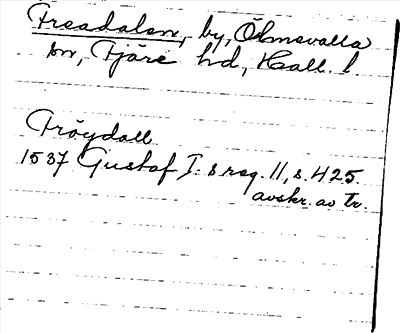 Freadalen, by, Ölmevalla
sn, Fjäre hd, Hall. l.
Fröydall
1537 Gustaf I:s reg. 11, s. 425.
avskr. av tr.